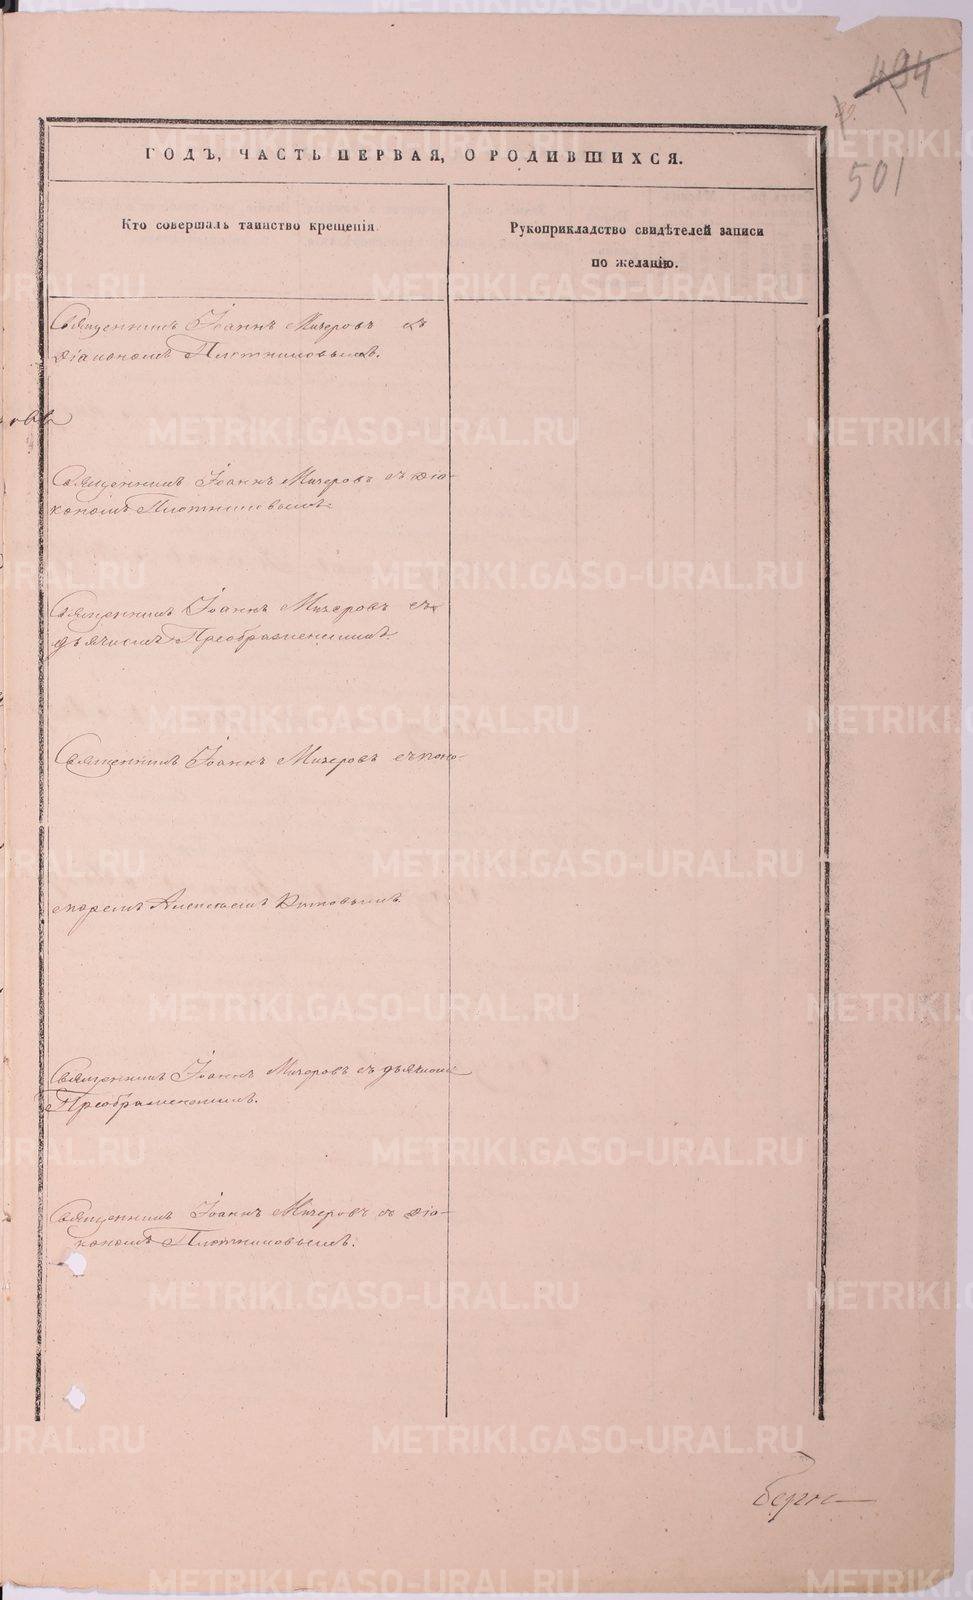 494
501
ГОДЪ, ЧАСТЬ ПЕРВАЯ, О РОДИВШИХСЯ.
Кто совершалъ таинство крещенія.
Рукоприкладство свидѣтелей записи
по желанію.
Священникъ Іоаннъ Мичеровъ съ
діакономъ Плотниковымъ.
Священникъ Іоаннъ Мичеровъ съ діа-
кономъ Плотниковымъ.
Священникъ Іоаннъ Мичеровъ съ
дьячкомъ Преображенскимъ.
Священникъ Іоаннъ Мичеровъ съ поно-
маремъ Алексѣемъ
Священникъ Іоаннъ Мичеровъ съ дьячкомъ
Преображенскимъ.
Священникъ Іоаннъ Мичеровъ съ діа-
кономъ Плотниковымъ.
METRIKI.GASO-URAL.RU